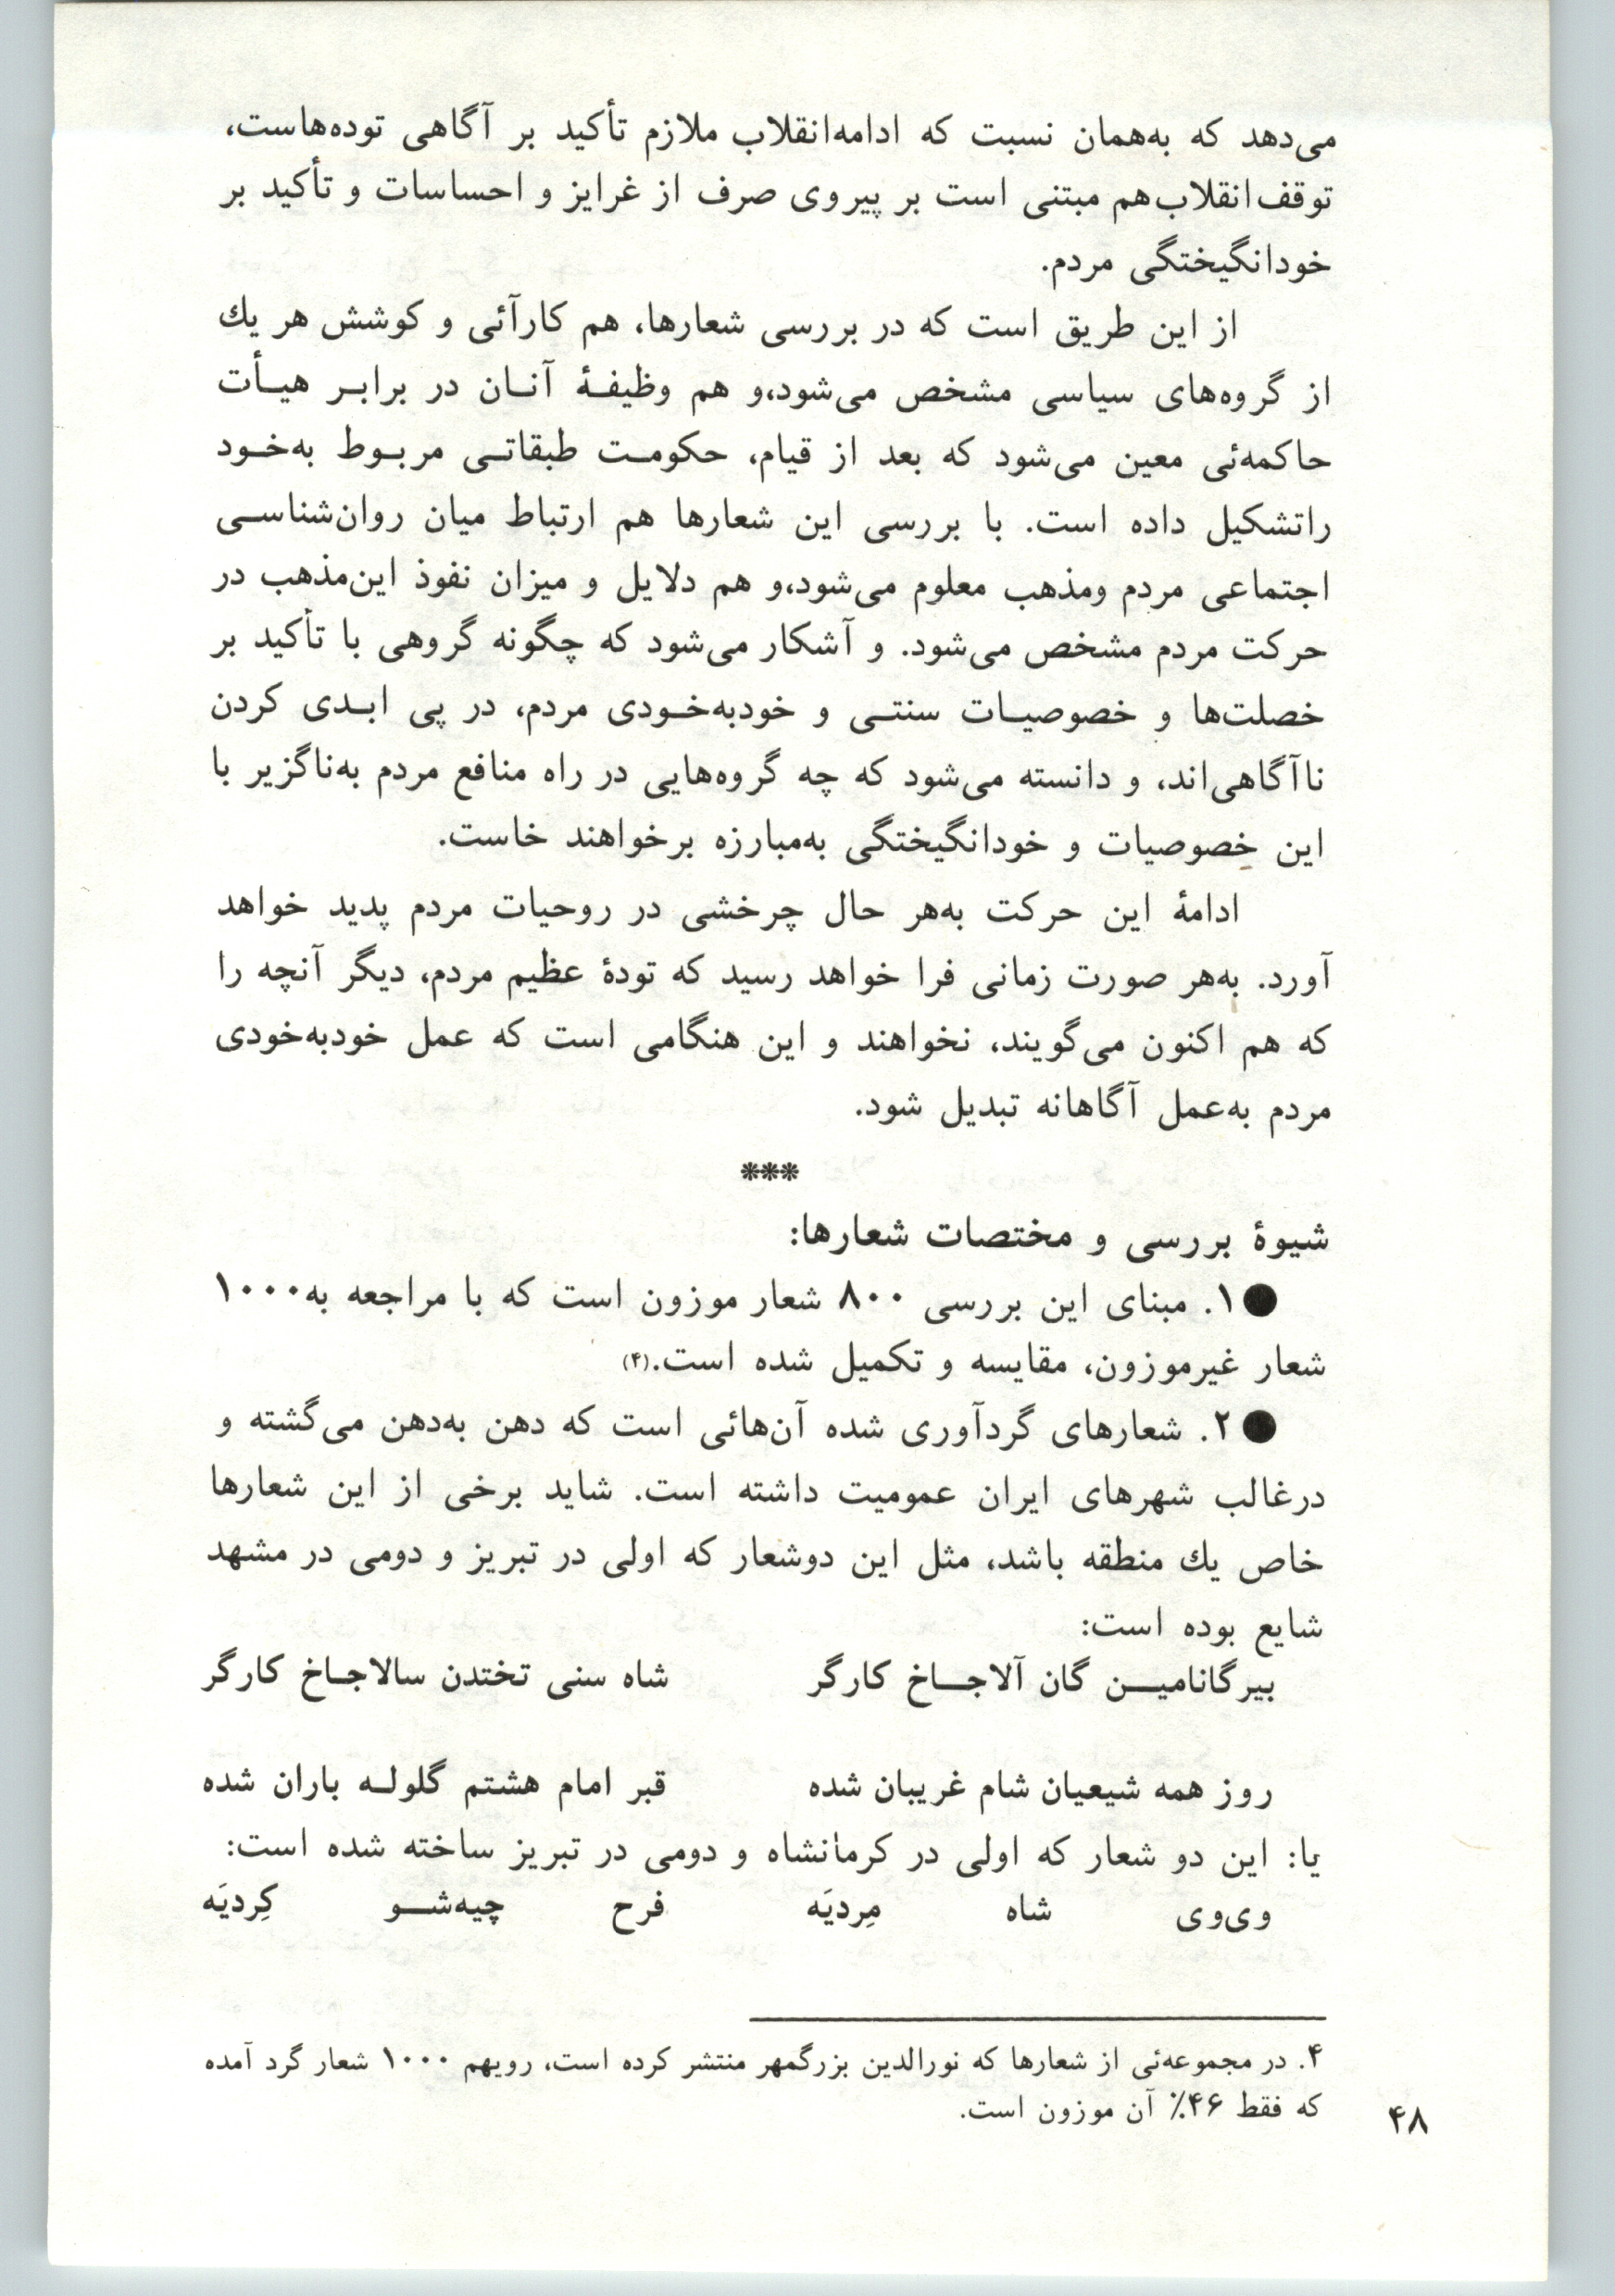 می‌دهد که به‌همان نسبت که ادامه‌انقلاب ملازم تأکید بر آگاهی توده‌هاست،
توقف‌انقلاب‌هم مبتنی است بر پیروی صرف از غرایز و احساسات و تأکید بر
خودانگیختگی مردم.
از این طریق است که در بررسی شعارها، هم کارآئی و کوشش هر یك
از گروه‌های سیاسی مشخص می‌شود،و هم وظیفهٔ آنان در برابر هیأت
حاکمه‌ئی معین می‌شود که بعد از قیام، حکومت طبقاتی مربوط به‌خود
راتشکیل داده است. با بررسی این شعارها هم ارتباط میان روان‌شناسی
اجتماعی مردم ومذهب معلوم می‌شود،و هم دلایل و میزان نفوذ این‌مذهب در
حرکت مردم مشخص می‌شود. و آشکار می‌شود که چگونه گروهی با تأکید بر
خصلت‌ها و خصوصیات سنتی و خودبه‌خودی مردم، در پی ابدی کردن
ناآگاهی‌اند، و دانسته می‌شود که چه گروه‌هایی در راه منافع مردم به‌ناگزیر با
این خصوصیات و خودانگیختگی به‌مبارزه برخواهند خاست.
ادامهٔ این حرکت به‌هر حال چرخشی در روحیات مردم پدید خواهد
آورد. به‌هر صورت زمانی فرا خواهد رسید که تودهٔ عظیم مردم، دیگر آنچه را
که هم اکنون می‌گویند، نخواهند و این هنگامی است که عمل خودبه‌خودی
مردم به‌عمل آگاهانه تبدیل شود.
***
شیوهٔ بررسی و مختصات شعارها:
●۱. مبنای این بررسی ۸۰۰ شعار موزون است که با مراجعه به۱۰۰۰
شعار غیرموزون، مقایسه و تکمیل شده است.(۴)
●۲. شعارهای گردآوری شده آن‌هائی است که دهن به‌دهن می‌گشته و
درغالب شهرهای ایران عمومیت داشته است. شاید برخی از این شعارها
خاص یك منطقه باشد، مثل این دوشعار که اولی در تبریز و دومی در مشهد
شایع بوده است:
بیرگانامین گان آلاجاخ کارگر شاه سنی تختدن سالاجاخ کارگر
روز همه شیعیان شام غریبان شده قبر امام هشتم گلوله باران شده
یا: این دو شعار که اولی در کرمانشاه و دومی در تبریز ساخته شده است:
وی‌وی شاه مِردیَه فرح چیه‌شو کِردیَه
۴. در مجموعه‌ئی از شعارها که نورالدین بزرگمهر منتشر کرده است، رویهم ۱۰۰۰ شعار گرد آمده
که فقط ۴۶٪ آن موزون است.
۴۸